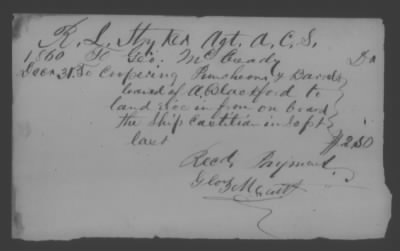 R. L. Stryker Agt. A. C. S.
1860 To Geo. McCready Dr
Decr 31. To Coopering Puncheons & Barrels
loaned of A. Blackford to
land rice in from on board
the Ship Castilian in Sept
last $2.50
Recd Payment
Geo